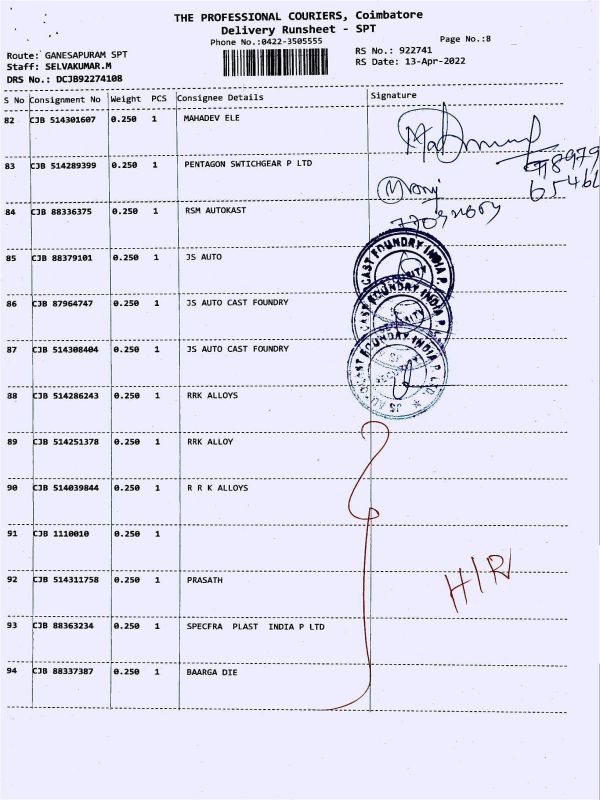 THE PROFESSIONAL COURIERS, Coimbatore
Delivery Runsheet - SPT
Phone No.:0422-3505555
Page No.:8
Route: GANESAPURAM SPT
RS No.: 922741
Staff: SELVAKUMAR.M
RS Date: 13-Apr-2022
DRS No.: DCJB92274108
S No Consignment No Weight PCS Consignee Details Signature
82 CJB 514301607 0.250 1 MAHADEV ELE
83 CJB 514289399 0.250 1 PENTAGON SWTICHGEAR P LTD
84 CJB 88336375 0.250 1 RSM AUTOKAST
85 CJB 88379101 0.250 1 JS AUTO
CAST FOUNDRY INDIA P.
86 CJB 87964747 0.250 1 JS AUTO CAST FOUNDRY
CAST FOUNDRY INDIA P.
87 CJB 514308404 0.250 1 JS AUTO CAST FOUNDRY
CAST FOUNDRY INDIA P LTD
88 CJB 514286243 0.250 1 RRK ALLOYS
89 CJB 514251378 0.250 1 RRK ALLOY
90 CJB 514039844 0.250 1 R R K ALLOYS
91 CJB 1110010 0.250 1
92 CJB 514311758 0.250 1 PRASATH
93 CJB 88363234 0.250 1 SPECFRA PLAST INDIA P LTD
94 CJB 88337387 0.250 1 BAARGA DIE